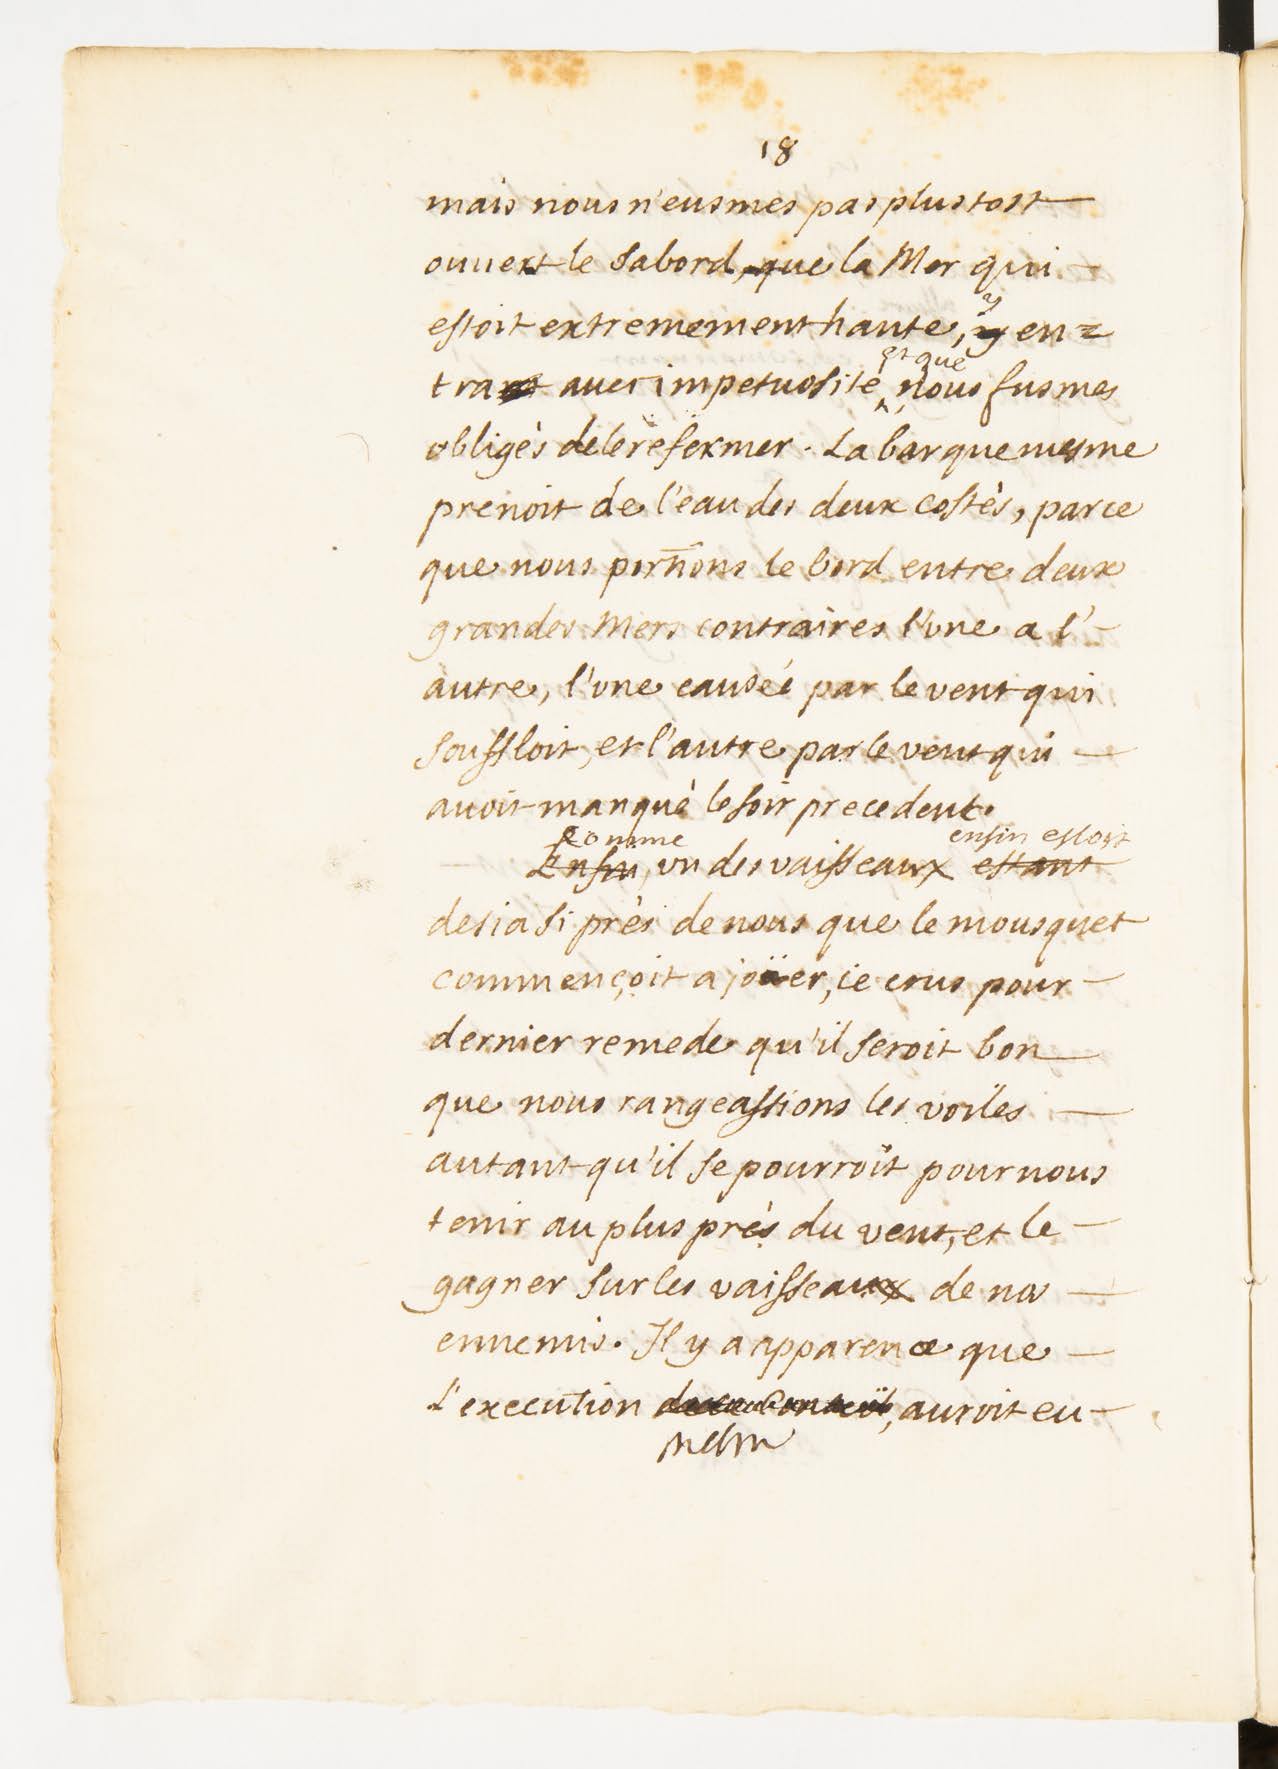 18
mais nous n'eusmes pas plustost
ouuert le sabord, que la Mer qui
estoit extremement haute, y en=
tra auec impetuosité, et que nous fusmes
obligés de le refermer. La barque mesme
prenoit de l'eau des deux costés, parce
que nous portions le bord entre deux
grandes Mers contraires l'vne a l'
autre, l'vne causée par le vent qui
souffloit, et l'autre par le vent qui
auoit manqué le soir precedent.
Comme enfin estoit
Enfin, vn des vaisseaux estant
desia si près de nous que le mousquet
commençoit a joüer, ie crus pour
dernier remede qu'il seroit bon
que nous rangeassions les voiles
autant qu'il se pourroit pour nous
tenir au plus près du vent, et le
gagner sur les vaisseaux de nos
ennemis. Il y a apparence que
l'execution auroit eu